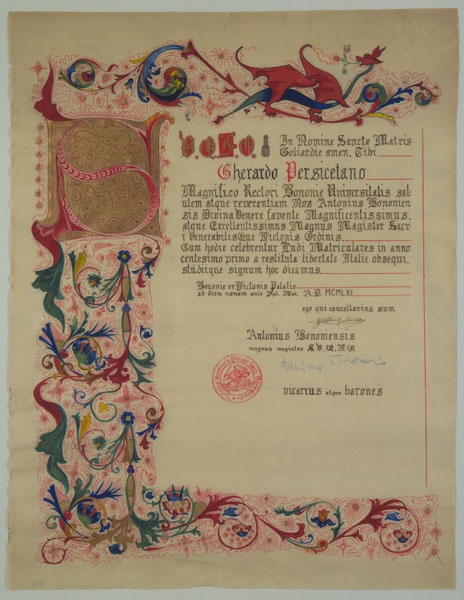 In Nomine Sancte Matris
Goliardie amen, Tibi
Gherardo Persicetano
Magnifico Rectori Bononie Universitatis sal
utem atque reverentiam Nos Antonius Bononien
sis Divina Venere favente Magnificentissimus,
atque Excellentissimus Magnus Magister Sacr
i Venerabilisque Fictonis Ordinis
Cum hodie celebrentur Ludi Matriculares in anno
centesimo primo a restituta libertate Italie obsequi,
studiique signum hoc dicamus
Bononie ex Fictonis Palatio
ad diem nonam ante Kal. Mai. A.D. MCMLXI
ego qui cancellarius sum
Antonius Bononiensis
magnus magister
vicarius atque barones